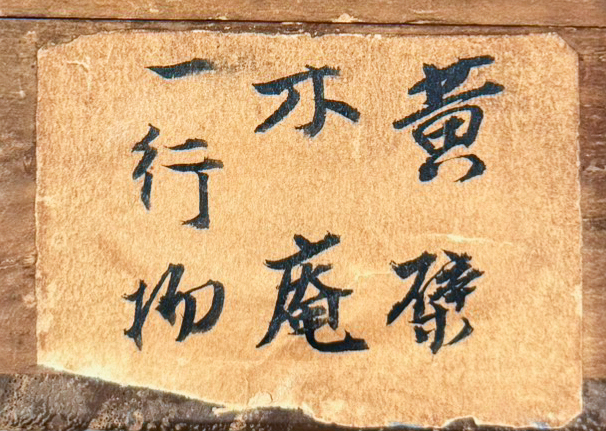 黄檗
木庵
一行物